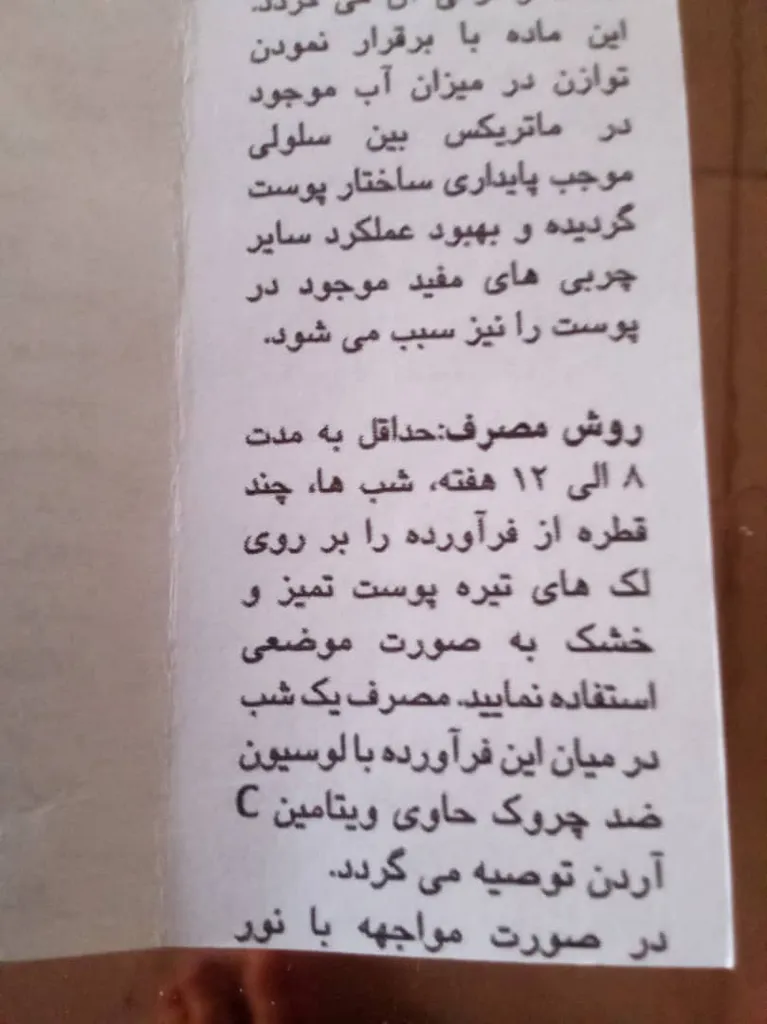 آن می گردد.
این ماده با برقرار نمودن
توازن در میزان آب موجود
در ماتریکس بین سلولی
موجب پایداری ساختار پوست
گردیده و بهبود عملکرد سایر
چربی های مفید موجود در
پوست را نیز سبب می شود.
روش مصرف:حداقل به مدت
۸ الی ۱۲ هفته، شب ها، چند
قطره از فرآورده را بر روی
لک های تیره پوست تمیز و
خشک به صورت موضعی
استفاده نمایید. مصرف یک شب
در میان این فرآورده با لوسیون
ضد چروک حاوی ویتامین C
آردن توصیه می گردد.
در صورت مواجهه با نور